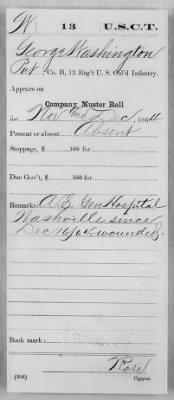 W 13 U.S.C.T.
George Washington
Pvt, Co. B, 13 Reg't U. S. Col'd Infantry.
Appears on
Company Muster Roll
for Nov and Dec, 1864
Present or absent Absent
Stoppage, $ 100 for
Due Gov't, $ 100 for
Remarks: Gen Hospital
Nashville since
Dec 16/64 wounded.
Book mark:
Rose
(358) Copyist.